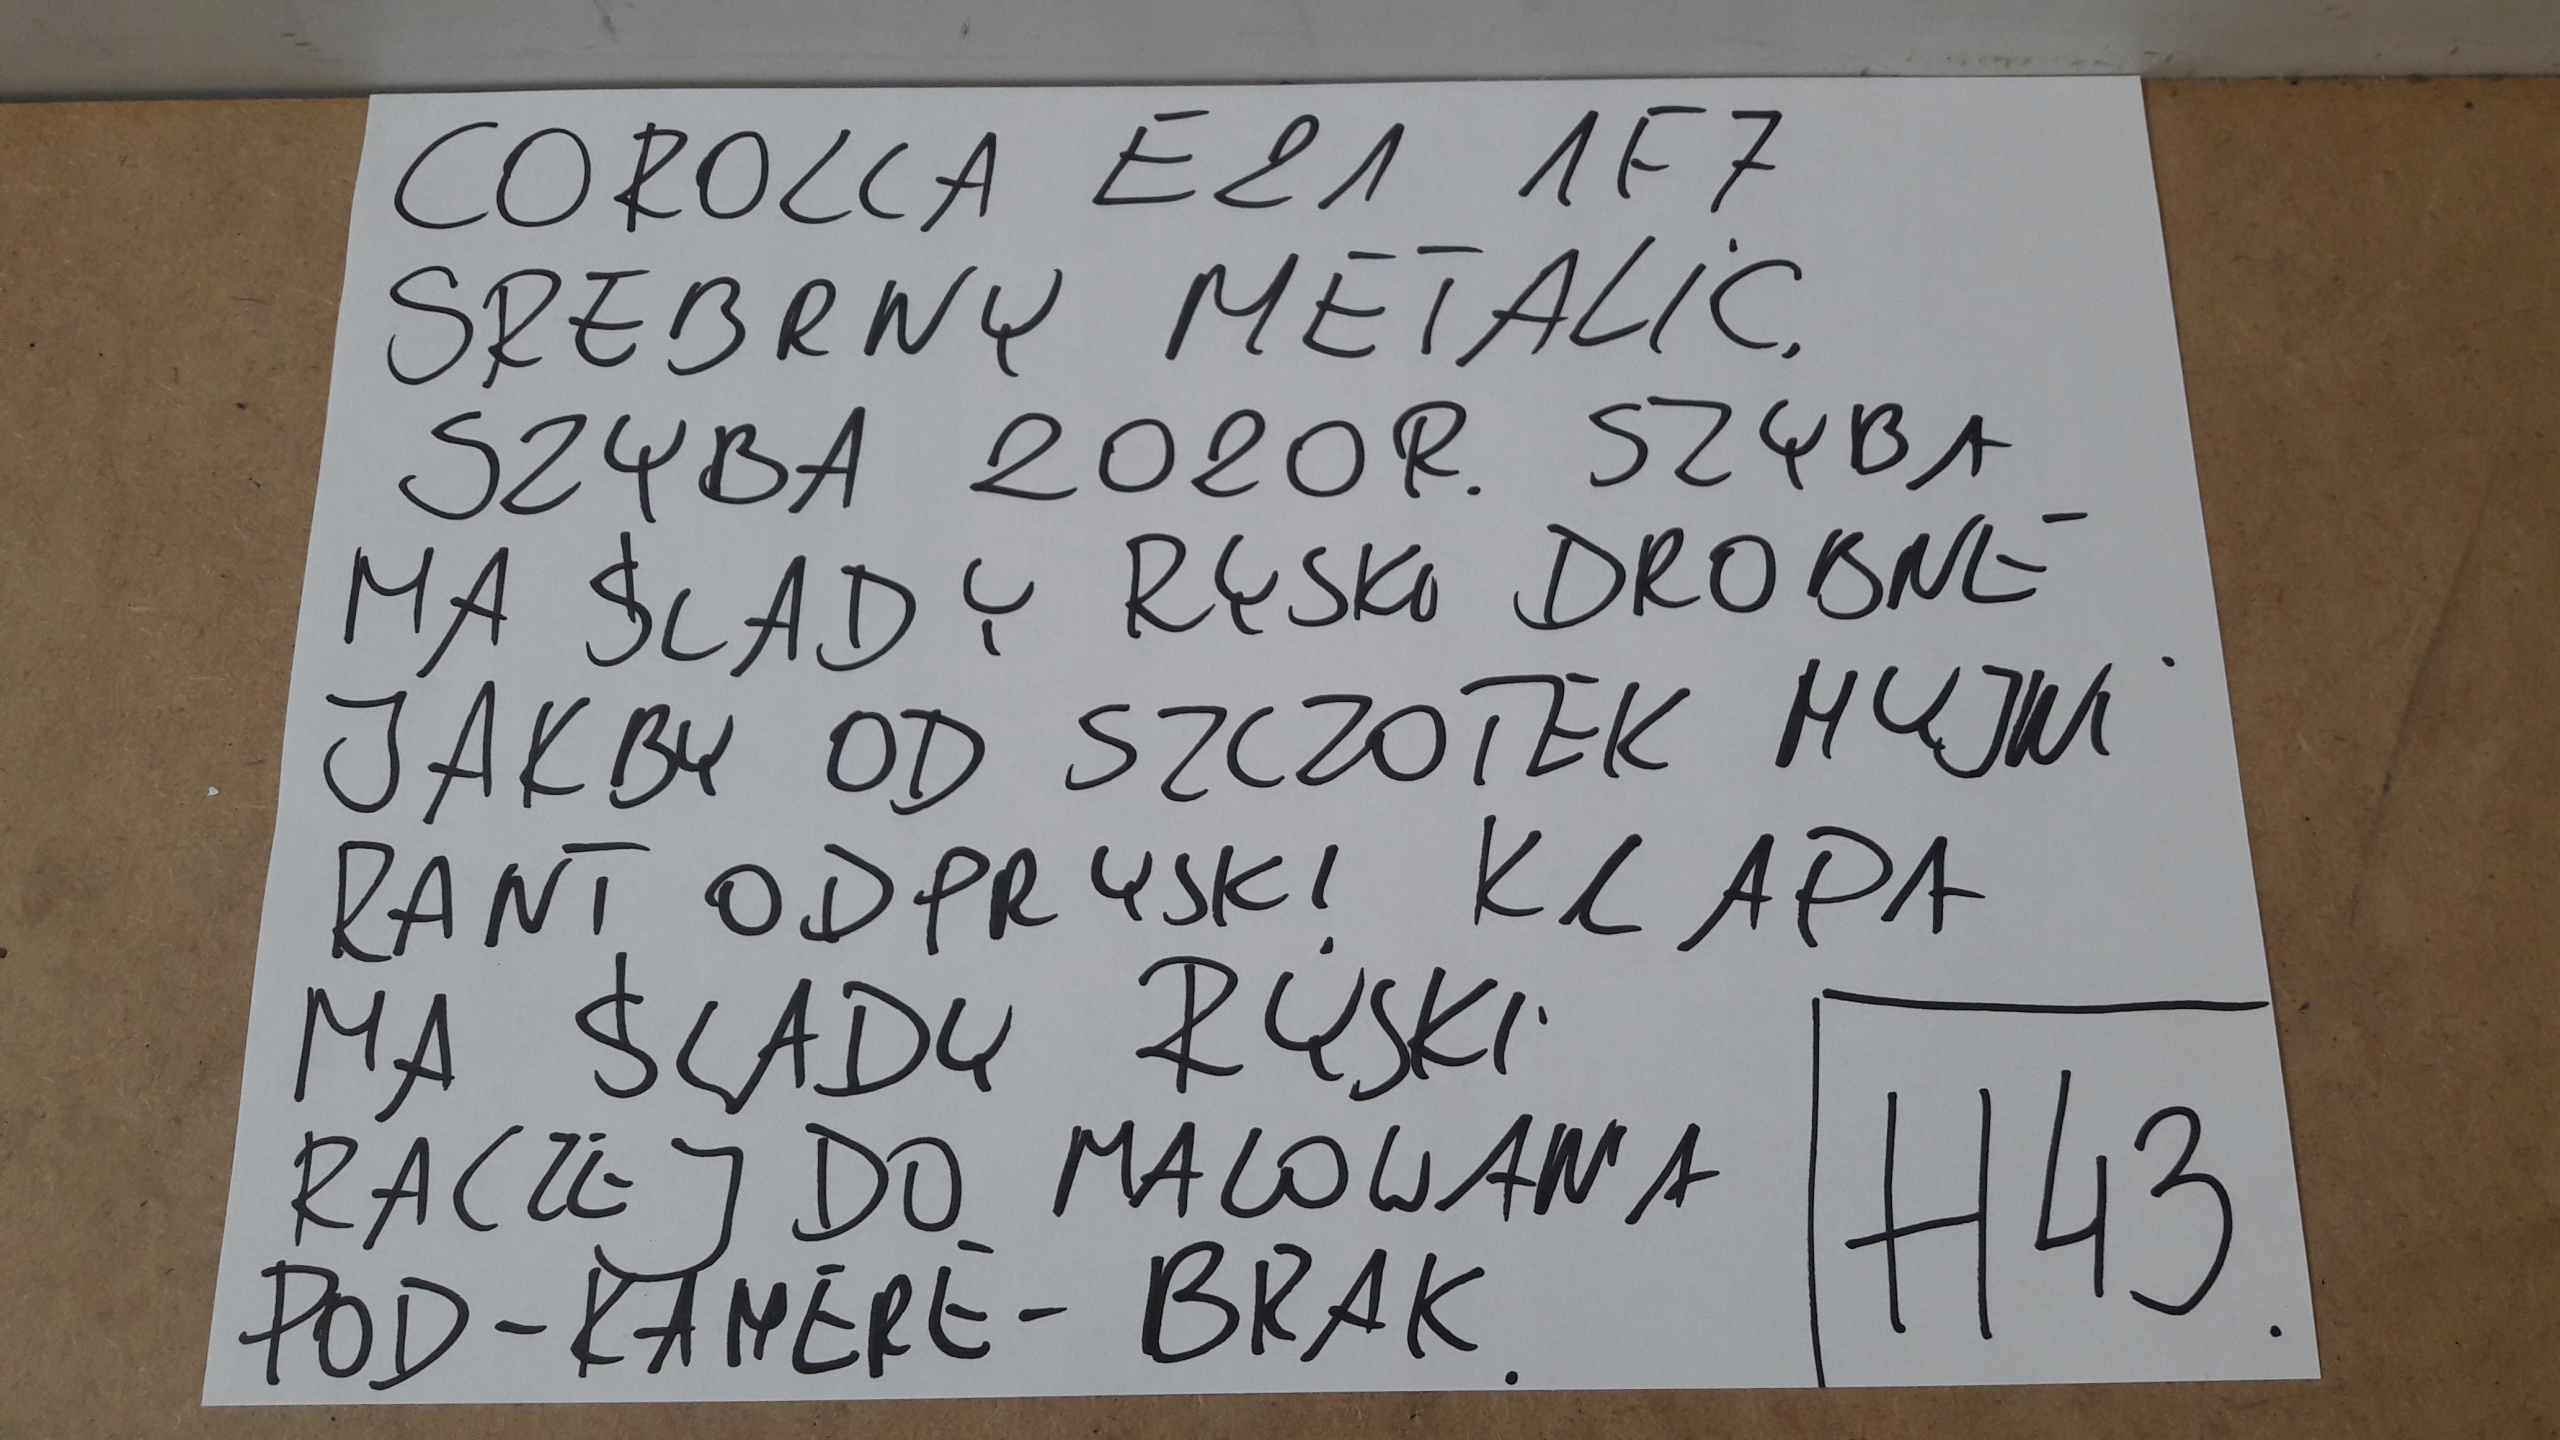 COROLLA E21 1F7
SREBRNY METALIC.
SZYBA 2020R. SZYBA
MA ŚLADY RYSKI DROBNE
JAKBY OD SZCZOTEK MYJNI
RANT ODPRYSKI KLAPA
MA ŚLADY RYSKI
RACZEJ DO MALOWANIA
POD-KAMERE- BRAK.
H43.